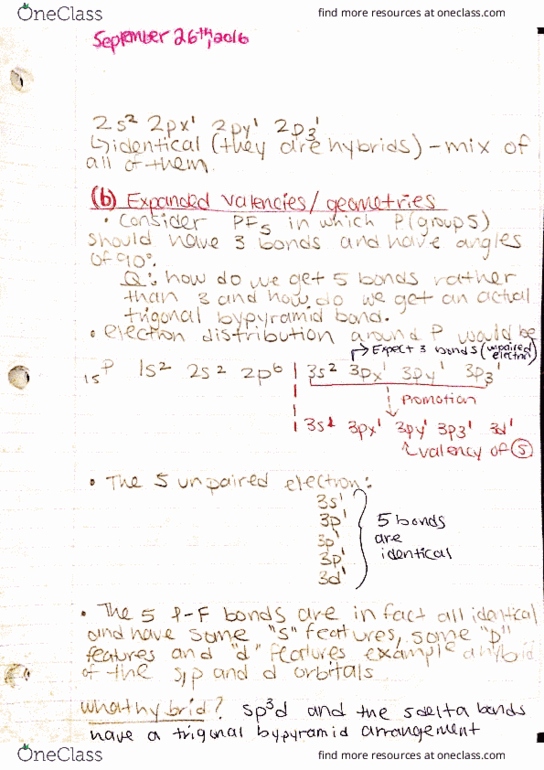 OneClass
find more resources at oneclass.com
September 26th, 2016
2s² 2px¹ 2py¹ 2pz¹
↳ identical (they are hybrids) - mix of
all of them.
(b) Expanded valencies/geometries
• Consider PF₅ in which P (group 5)
should have 3 bonds and have angles
of 90°.
Q: how do we get 5 bonds rather
than 3 and how do we get an actual
trigonal bypyramid bond.
• electron distribution around P would be
→ Expect 3 bonds (unpaired electron)
₁₅P 1s² 2s² 2p⁶ | 3s² 3px¹ 3py¹ 3pz¹
Promotion
3s¹ 3px¹ 3py¹ 3pz¹ 3d¹
valency of 5
• The 5 unpaired electron:
3s¹
3p¹
3p¹
3p¹
3d¹
5 bonds
are
identical
• The 5 P-F bonds are in fact all identical
and have some "s" features, some "p"
features and "d" features example a hybrid
of the s, p and d orbitals
what hybrid? sp³d and the 5 delta bonds
have a trigonal bypyramid arrangement
OneClass
find more resources at oneclass.com